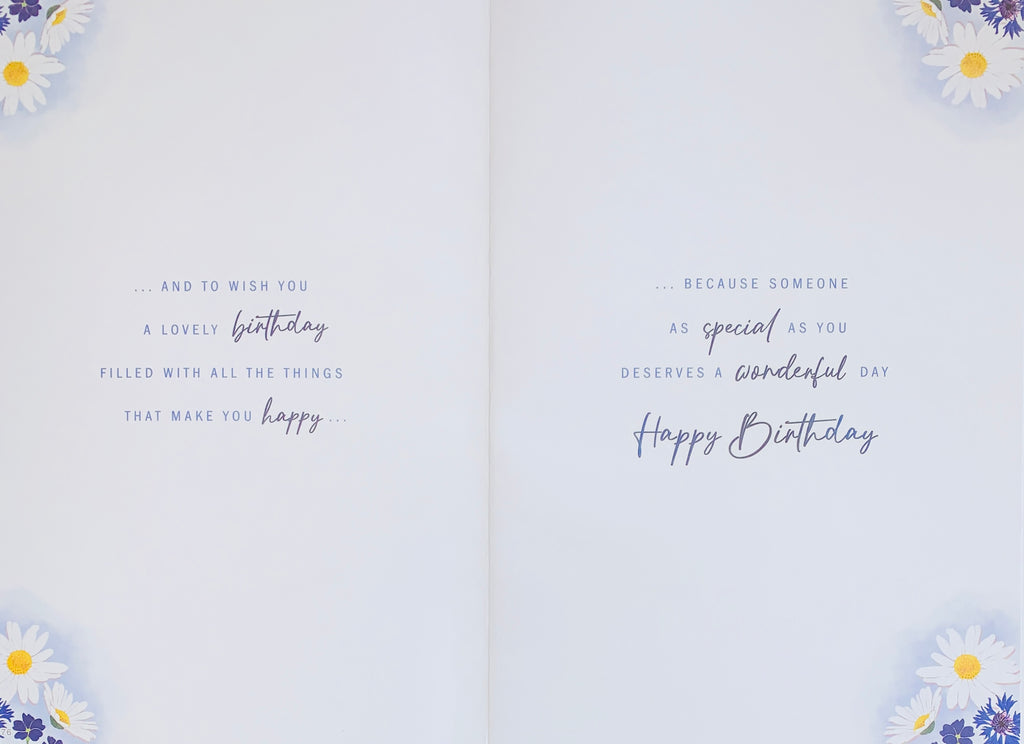 ... AND TO WISH YOU
A LOVELY birthday
FILLED WITH ALL THE THINGS
THAT MAKE YOU happy...
... BECAUSE SOMEONE
AS special AS YOU
DESERVES A wonderful DAY
Happy Birthday
76